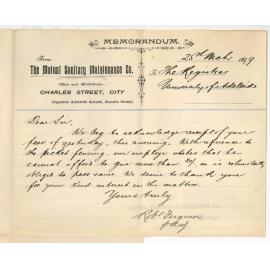 MEMORANDUM.
From
The Mutual Sanitary Maintenance Co.
Office and Workshops:
CHARLES STREET, CITY
(Opposite Adelaide Arcade, Rundle Street).
25th Mch 1899
The Registrar
University of Adelaide
Dear Sir,
We beg to acknowledge receipt of your
favr of yesterday, this morning. With reference to
the picket fencing, our employe states that he
cannot afford to give more than 5/- so is reluctantly
obliged to pass same. We desire to thank you
for your kind interest in the matter.
Yours truly
Robt Ferguson